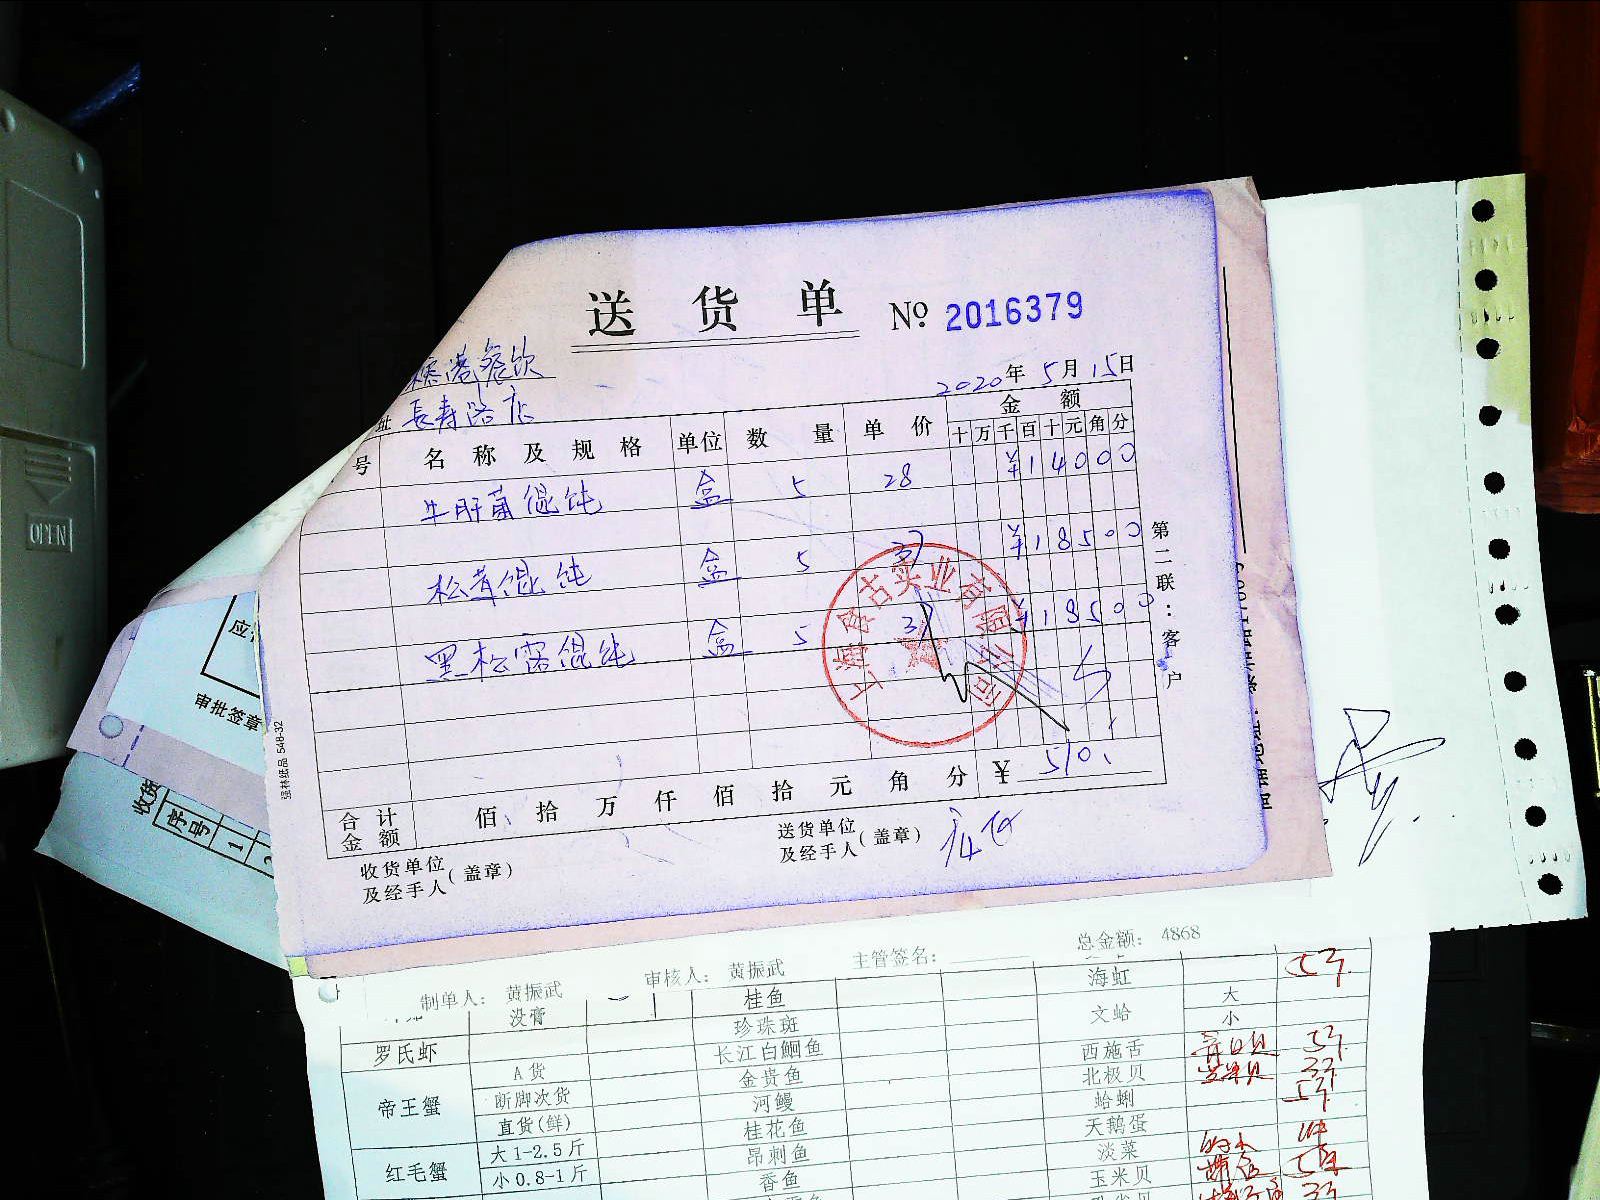 送货单 № 2016379
餐饮
2020年5月15日
址 长寿路店
号 名称及规格 单位 数量 单价 金额
十万千百十元角分
牛肝菌馄饨 盒 5 28 ¥14000
松茸馄饨 盒 5 37 ¥18500
黑松露馄饨 盒 5 37 ¥18500
合计金额 佰拾万仟佰拾元角分 ¥ 510
收货单位及经手人(盖章)
送货单位及经手人(盖章)
第二联:客户
强林纸品 548-32
上海食古实业有限公司
OPEN
审批签章
收货
序号
1
2
总金额: 4868
制单人: 黄振武 审核人: 黄振武 主管签名:
没膏 桂鱼 海虹
珍珠斑 文蛤 大
小
罗氏虾 长江白鮰鱼 西施舌
帝王蟹 A货 金贵鱼 北极贝
断脚次货 河鳗 蛤蜊
直货(鲜) 桂花鱼 天鹅蛋
红毛蟹 大1-2.5斤 昂刺鱼 淡菜
小0.8-1斤 香鱼 玉米贝